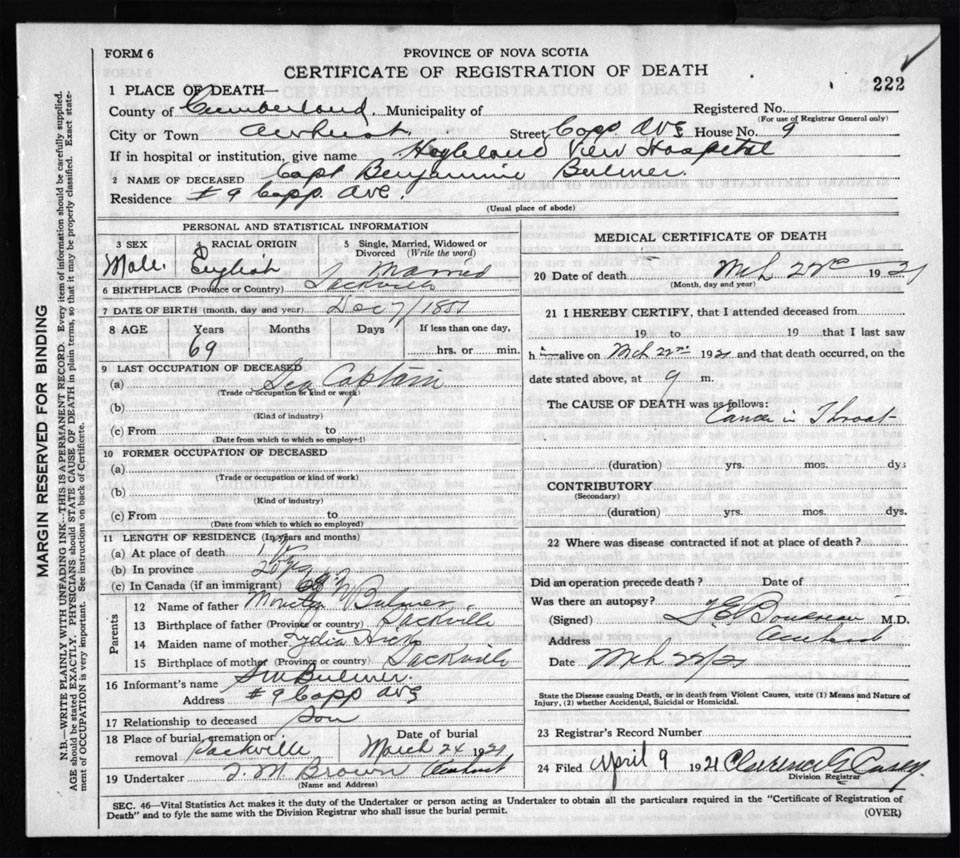 FORM 6
PROVINCE OF NOVA SCOTIA
CERTIFICATE OF REGISTRATION OF DEATH
222
1 PLACE OF DEATH—
County of Cumberland, Municipality of
Registered No.
(For use of Registrar General only)
City or Town Amherst Street Copp Ave House No. 9
If in hospital or institution, give name Highland View Hospital
2 NAME OF DECEASED Capt Benjamin Bulmer.
Residence # 9 Copp Ave.
(Usual place of abode)
PERSONAL AND STATISTICAL INFORMATION
3 SEX 4 RACIAL ORIGIN 5 Single, Married, Widowed or Divorced (Write the word)
Male English Married
6 BIRTHPLACE (Province or Country) Sackville
7 DATE OF BIRTH (month, day and year) Dec 7/1851
8 AGE Years Months Days If less than one day,
69 hrs. or min.
9 LAST OCCUPATION OF DECEASED
(a) Sea Captain
(Trade or occupation or kind of work)
(b)
(Kind of industry)
(c) From to
(Date from which to which so employed)
10 FORMER OCCUPATION OF DECEASED
(a)
(Trade or occupation or kind of work)
(b)
(Kind of industry)
(c) From to
(Date from which to which so employed)
11 LENGTH OF RESIDENCE (In years and months)
(a) At place of death 1
(b) In province
(c) In Canada (if an immigrant) 69
Parents
12 Name of father Bulmer
13 Birthplace of father (Province or country) Sackville
14 Maiden name of mother Lydia
15 Birthplace of mother (Province or country) Sackville
16 Informant's name Bulmer.
Address # 9 Copp Ave
17 Relationship to deceased Son
18 Place of burial, cremation or removal Sackville Date of burial March 24 1921
19 Undertaker Brown Amherst
(Name and Address)
MEDICAL CERTIFICATE OF DEATH
20 Date of death Mch 22nd 1921
(Month, day and year)
21 I HEREBY CERTIFY, that I attended deceased from
19 to 19 that I last saw
h im alive on Mch 22nd 1921 and that death occurred, on the
date stated above, at 9 m.
The CAUSE OF DEATH was as follows:
Cancer in Throat
(duration) yrs. mos. dys
CONTRIBUTORY
(Secondary)
(duration) yrs. mos. dys.
22 Where was disease contracted if not at place of death?
Did an operation precede death? Date of
Was there an autopsy?
(Signed) M.D.
Address Amherst
Date Mch 22/21
State the Disease causing Death, or in death from Violent Causes, state (1) Means and Nature of
Injury, (2) whether Accidental, Suicidal or Homicidal.
23 Registrar's Record Number
24 Filed April 9 1921 Clarence G Casey
Division Registrar
SEC. 46—Vital Statistics Act makes it the duty of the Undertaker or person acting as Undertaker to obtain all the particulars required in the "Certificate of Registration of
Death" and to fyle the same with the Division Registrar who shall issue the burial permit.
(OVER)
MARGIN RESERVED FOR BINDING
N.B.—WRITE PLAINLY WITH UNFADING INK—THIS IS A PERMANENT RECORD. Every item of information should be carefully supplied.
AGE should be stated EXACTLY. PHYSICIANS should STATE CAUSE OF DEATH in plain terms, so that it may be properly classified. Exact state-
ment of OCCUPATION is very important. See instructions on back of Certificate.